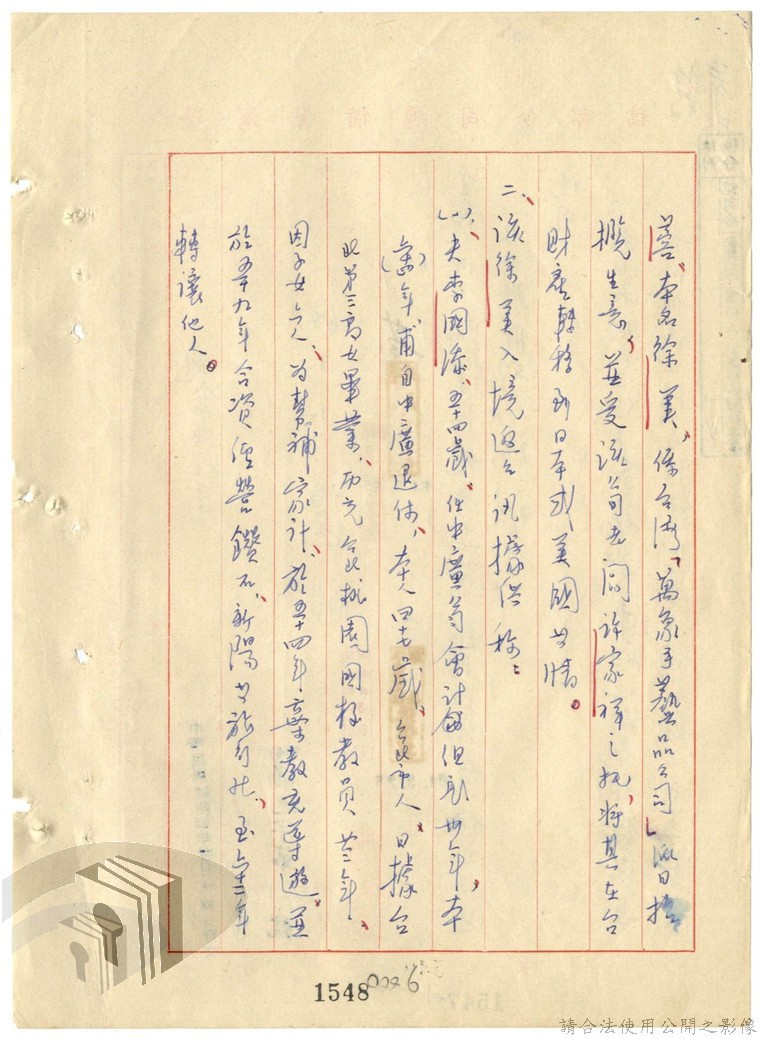 蓉、本名徐美、係台湾「萬象手藝品公司」派日招
攬生意、並受該公司老闆許家祥之托、將其在台
財產轉移到日本或美國共情。
二、該徐美入境返台訊據供稱：
(一)、夫李國漆、五十四歲、任中廣公司會計組組長卅年、本
年、甫自中廣退休、本人四七歲、台北市人、日據台
北第三高女畢業、历充台北桃園國校教員廿三年、
因子女六人、为幫補家計、於五十四年棄教充導遊、並
於五十九年合資經營鑽石、新陽等旅行社、至六十二年
轉讓他人。
1548
請合法使用公開之影像